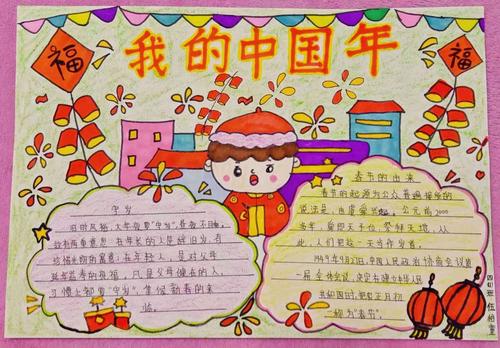 我的中国年
福
福
守岁
旧时风俗,大年夜要"守岁",昼夜不眠。
这有两重意思:年长的人是辞旧岁,有
珍惜光阴的寓意;年轻人,是对父母
延年益寿的祝福,凡是父母健在的人,
习惯上都要"守岁",直候新春的来
临。
春节的由来
春节的起源为公众普遍接所的
说法是,由虞舜兴起。公元前2000
多年,舜即天子位,祭拜天地,从
此,人们把这一天当作岁首。
1949年9月27日,中国人民政治协商会议第
一届全体会议,决定在建立中华人民
共和国时,把农历正月初
一称为"春节"。
四(1)班